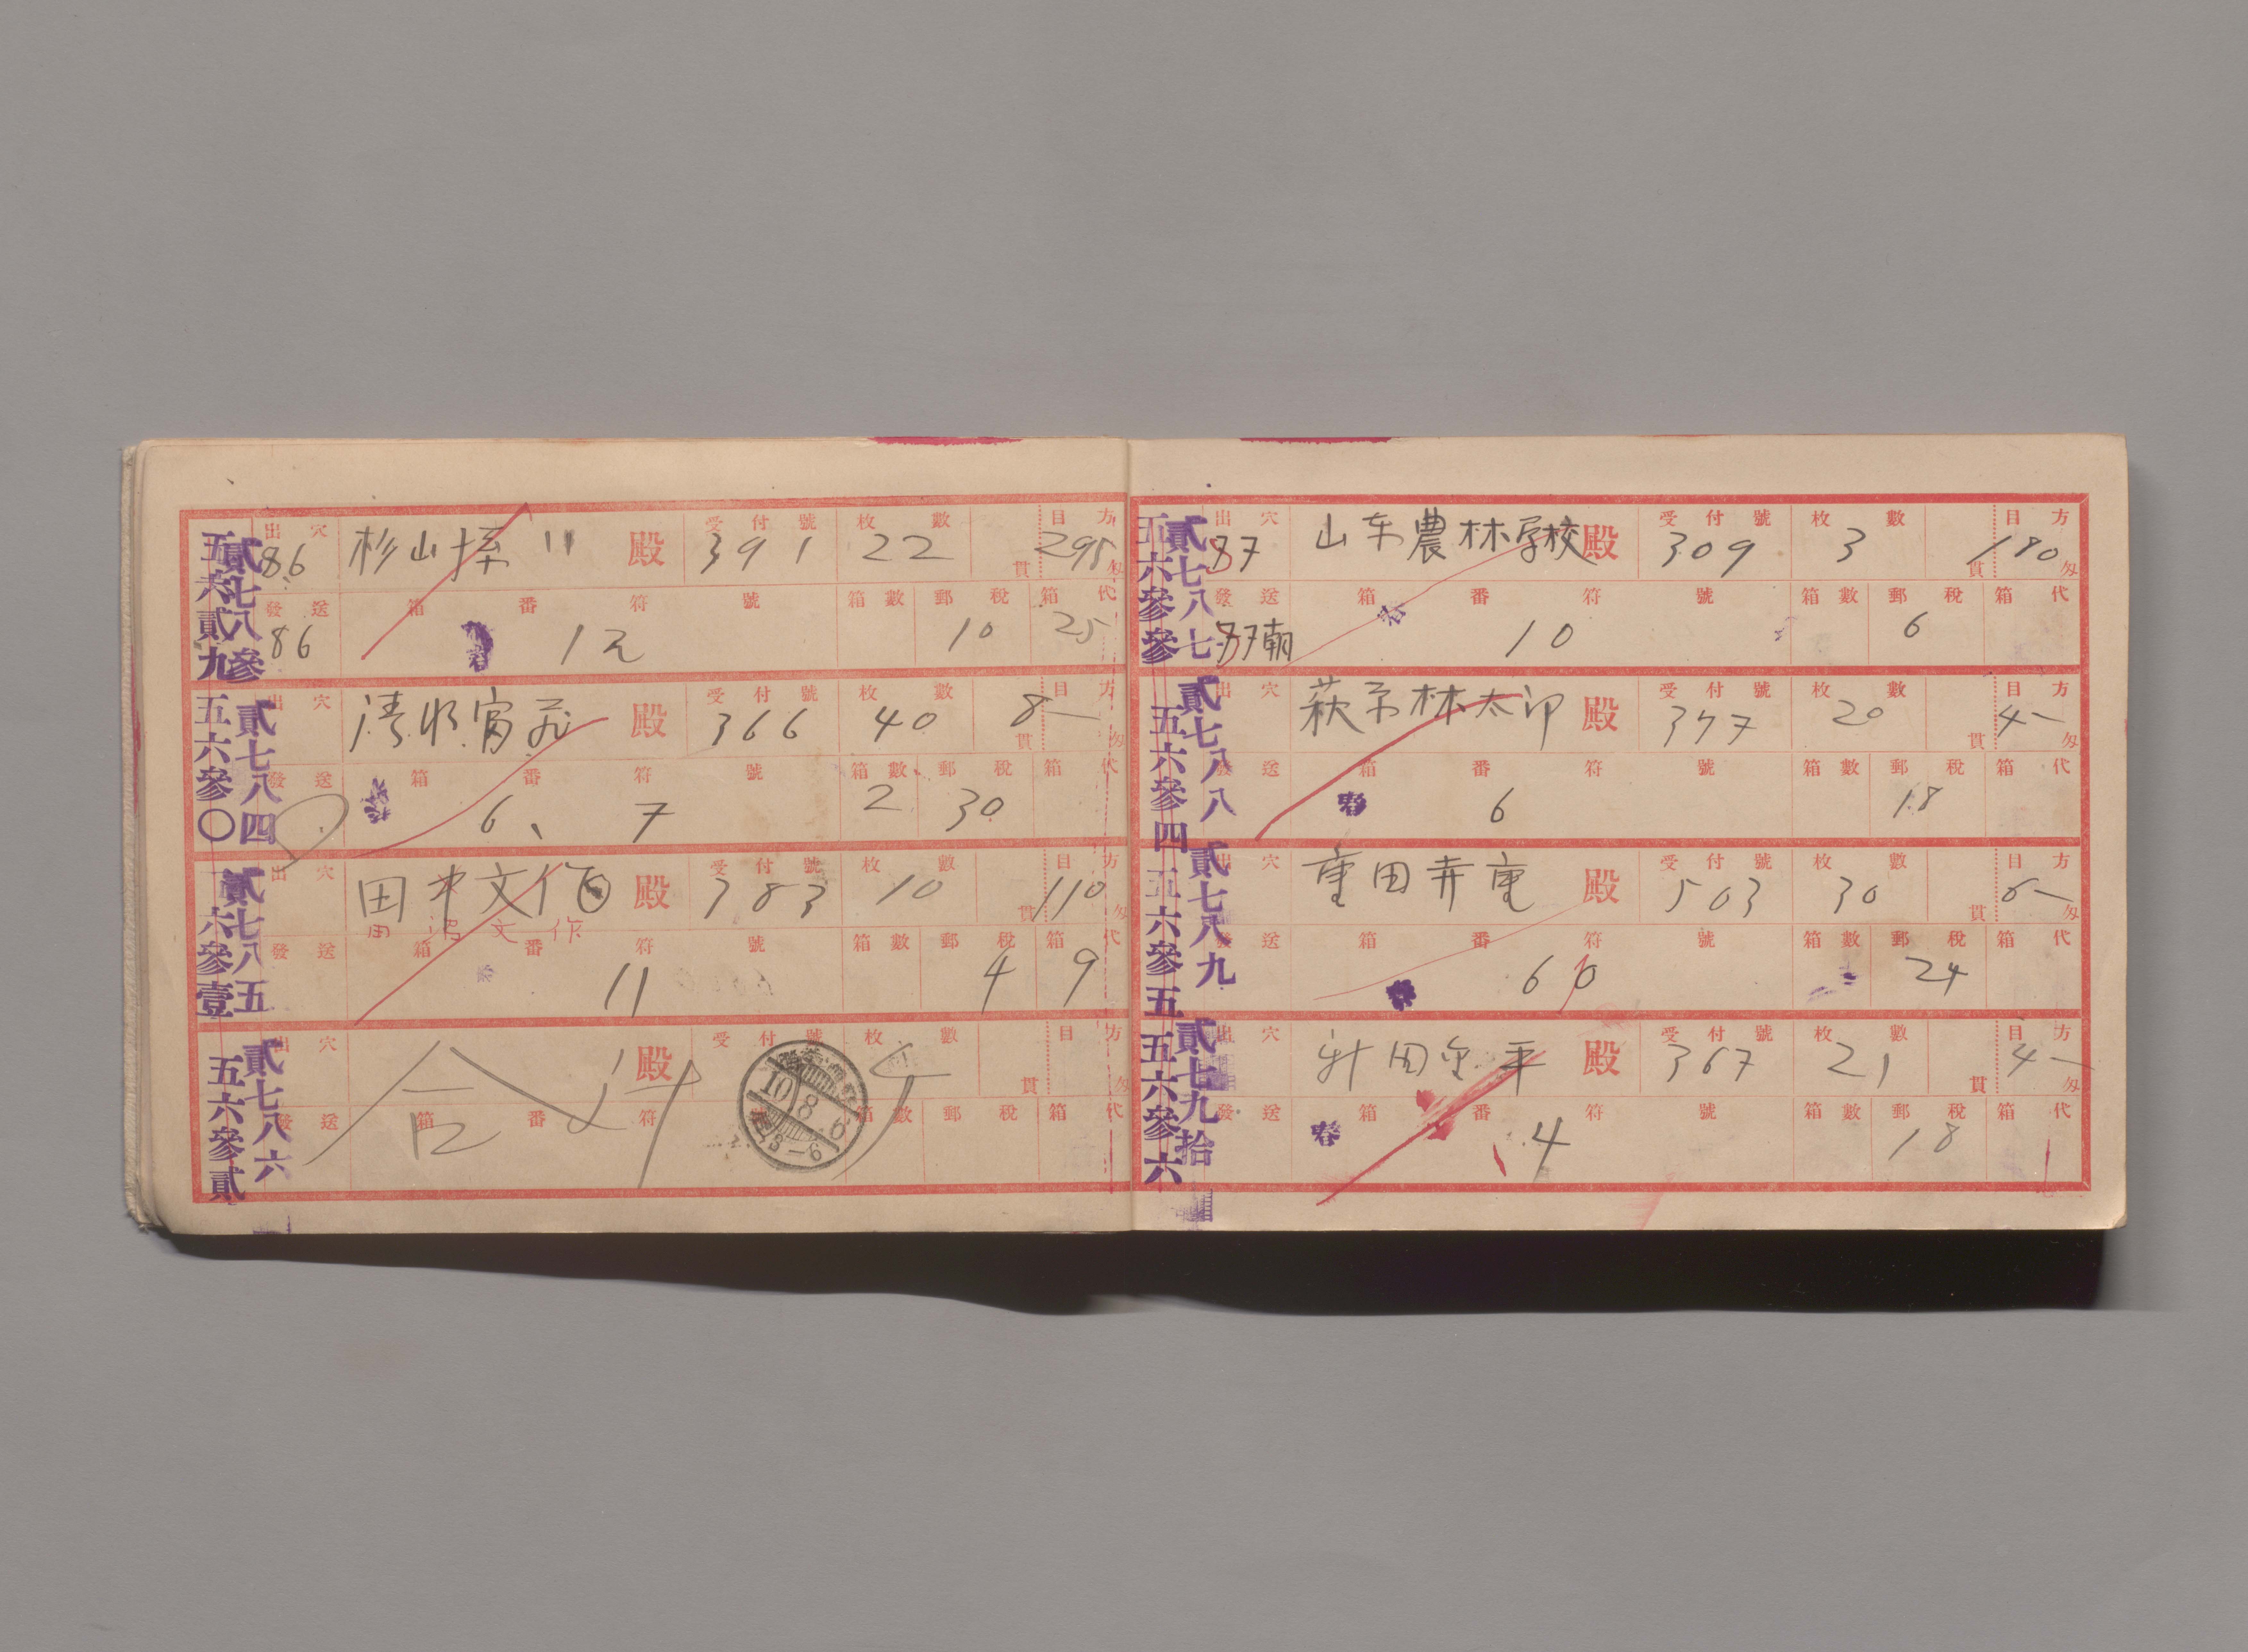 五六貳九 貳七八參
出穴 86 杉山 殿 受付號 391 枚數 22 貫 目方 295 匁
發送 86 箱番符號 12 箱數 郵稅 10 箱代 25
五六參〇 貳七八四
出穴 殿 受付號 366 枚數 40 貫 目方 8一 匁
發送 箱番符號 6、7 箱數 2 郵稅 30 箱代
六參壹 貳七八五
出穴 田中文作 殿 受付號 383 枚數 10 貫 目方 110 匁
田沼文作
發送 箱番符號 11 箱數 郵稅 4 箱代 9
五六參貳 貳七八六
出穴 殿 受付號 枚數 貫 目方 匁
發送 箱番符號 箱數 郵稅 箱代
10 8 6
3-6
五六參參 貳七八七
出穴 87 山东農林学校 殿 受付號 309 枚數 3 貫 目方 180 匁
發送 87朝 箱番符號 10 箱數 郵稅 6 箱代
五六參四 貳七八八
出穴 林太 殿 受付號 377 枚數 20 貫 目方 4一 匁
發送 春 箱番符號 6 箱數 郵稅 18 箱代
五六參五 貳七八九
出穴 重田 殿 受付號 503 枚數 30 貫 目方 6一 匁
發送 春 箱番符號 6 箱數 郵稅 24 箱代
五六參六 貳七九拾
出穴 田 平 殿 受付號 367 枚數 21 貫 目方 4一 匁
發送 春 箱番符號 4 箱數 郵稅 18 箱代